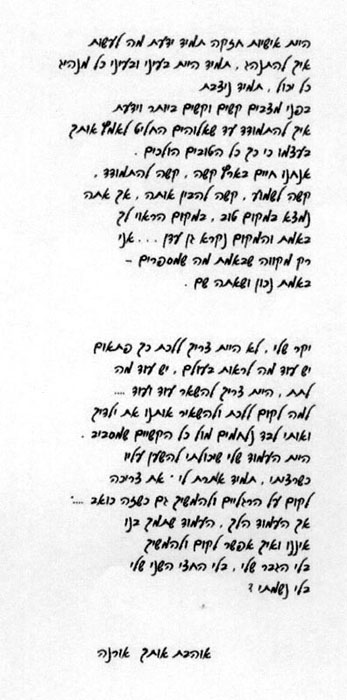 היית אישיות חזקה תמיד ידעת מה לעשות
איך להתנהג, תמיד היית בעיני ובעיני כל מנהיג
כל יכול, תמיד ניצבת
בפני מצבים קשים וקשים ביותר וידעת
איך להתמודד עד שאלוהים החליט לאמץ אותך
בעצמו כי כך כל הטובים הולכים.
אנחנו חיים בארץ קשה, קשה להתמודד,
קשה לשמוע, קשה להבין אותה, אך אתה
נמצא במקום טוב, במקום הראוי לך
באמת והמקום נקרא גן עדן... אני
רק מקווה שבאמת מה שמספרים -
באמת נכון ושאתה שם.
יקר שלי, לא היית צריך ללכת כך פתאום
יש עוד מה לראות בעולם, יש עוד מה
לתת, היית צריך להשאר עוד ועוד ....
למה לקום ללכת ולהשאיר אותנו את ילדיך
ואותי לבד נלחמים מול כל הקשיים שמסביב.
היית העמוד שלי שיכולתי להשען עליו
כשרציתי, תמיד אמרת לי: את צריכה
לקום על הרגליים ולהמשיך גם כשזה כואב ....
אך העמוד הלך, העמוד שתמך בנו
איננו ואיך אפשר לקום ולהמשיך
בלי הגבר שלי, בלי החצי השני שלי
בלי נשמתי?
אוהבת אותך אורנה